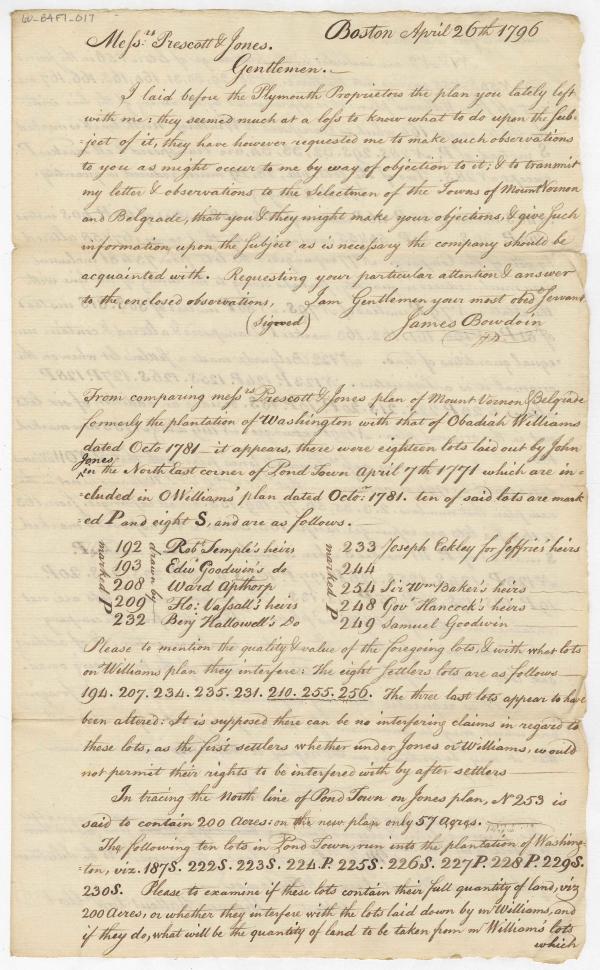 W-B4F1-017
Boston April 26th 1796
Messrs Prescott & Jones.
Gentlemen.—
I laid before the Plymouth Proprietors the plan you lately left
with me: they seemed much at a loss to know what to do upon the Sub-
=ject of it, they have however requested me to make such observations
to you as might occur to me by way of objection to it; & to transmit
my letter & observations to the Selectmen of the Towns of Mount Vernon
and Belgrade, that you & they might make your objections, & give such
information upon the Subject as is necessary the company should be
acquainted with. Requesting your particular attention & answer
to the enclosed observations, I am Gentlemen your most obedt Servant
(Signed) James Bowdoin
From comparing messrs Prescott & Jones plan of Mount Vernon & Belgrade
formerly the plantation of Washington with that of Obadiah Williams
dated Octo 1781 — it appears, there were eighteen lots laid out by John
Jones
in the North East corner of Pond Town April 7th 1771 which are in-
=cluded in O Williams' plan dated Octor. 1781. ten of said lots are mark
=ed P and eight S, and are as follows.—
marked P
192 Robt Temple's heirs
193 Edwd Goodwin's do
208 Ward Apthorp
209 Flo: Vassall's heirs
232 Benj Hallowell's Do
drawn by
marked P
233 Joseph Eckley for Jeffrie's heirs
244
254 Sir Wm Baker's heirs
248 Govr Hancock's heirs
249 Samuel Goodwin
Please to mention the quality & value of the foregoing lots, & with what lots
on Williams plan they interfere: The eight settlers lots are as follows
194. 207. 234. 235. 231. 210. 255. 256. The three last lots appear to have
been altered: It is supposed there can be no interfering claims in regard to
these lots, as the first settlers whether under Jones or Williams, would
not permit their rights to be interfered with by after settlers
In tracing the North line of Pond Town on Jones plan, No 253 is
said to contain 200 Acres: on the new plan only 57 Acres.
The following ten lots in Pond Town, run into the plantation of Washing-
=ton, viz. 187S. 222S. 223S. 224P. 225S. 226S. 227P. 228P. 229S.
230S. Please to examine if these lots contain their full quantity of land, viz
200 Acres, or whether they interfere with the lots laid down by mr Williams, and
if they do, what will be the quantity of land to be taken from mr Williams' lots
which